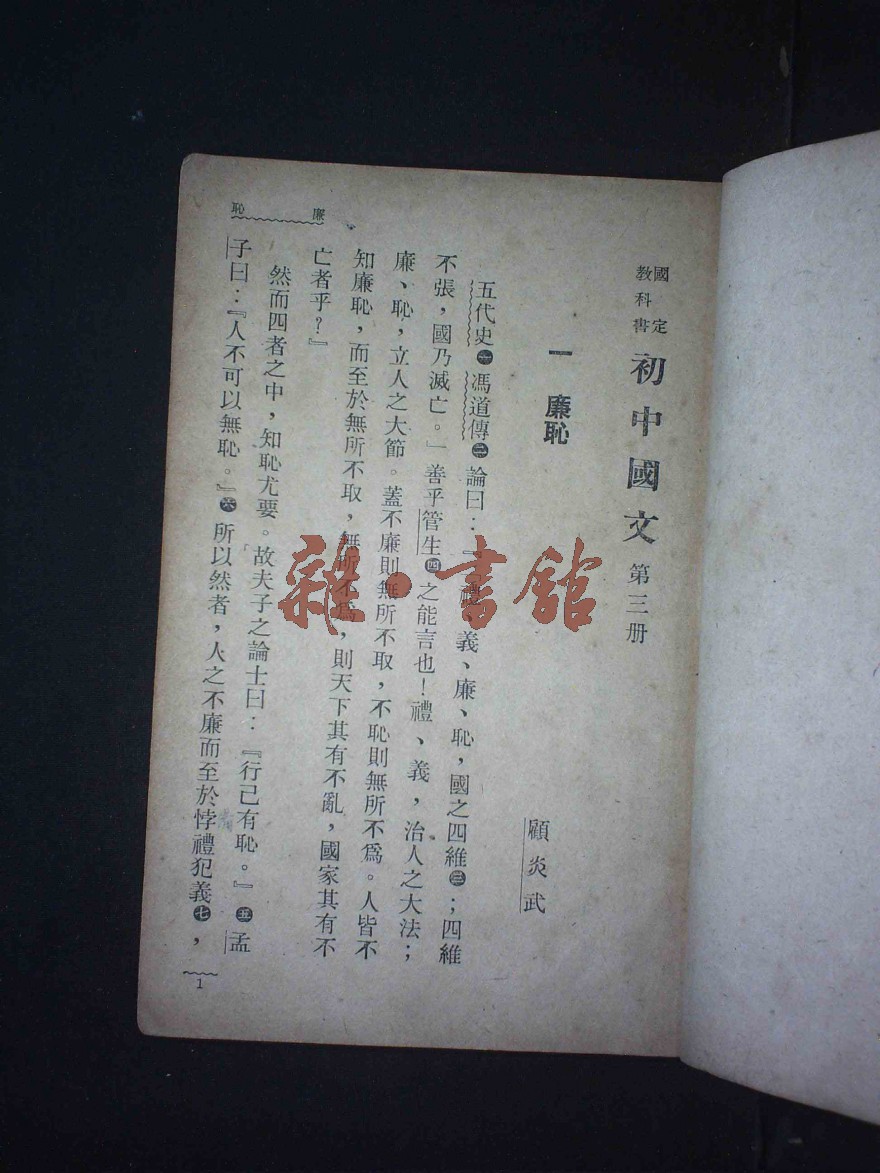 國定教科書 初中國文 第三册
一 廉恥
顧炎武
五代史㊀馮道傳㊁論曰：『禮、義、廉、恥，國之四維㊂；四維
不張，國乃滅亡。」善乎管生㊃之能言也！禮、義，治人之大法；
廉、恥，立人之大節。蓋不廉則無所不取，不恥則無所不爲。人皆不
知廉恥，而至於無所不取，無所不爲，則天下其有不亂，國家其有不
亡者乎？』
然而四者之中，知恥尤要。故夫子之論士曰：『行己有恥。』㊄孟
子曰：『人不可以無恥。』㊅所以然者，人之不廉而至於悖禮犯義㊆，
廉恥
1
雜·書館